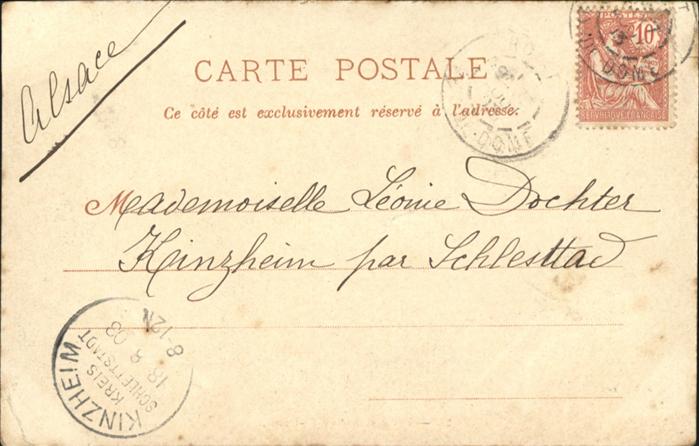 Alsace
CARTE POSTALE
Ce côté est exclusivement réservé à l'adresse.
POSTES
10
REPUBLIQUE FRANÇAISE
DE DOME
DE-DOME
Mademoiselle Léonie Dochter
Kinzheim par Schlesttad
KINZHEIM
KREIS
SCHLETTSTADT
18 8 03
8-12N